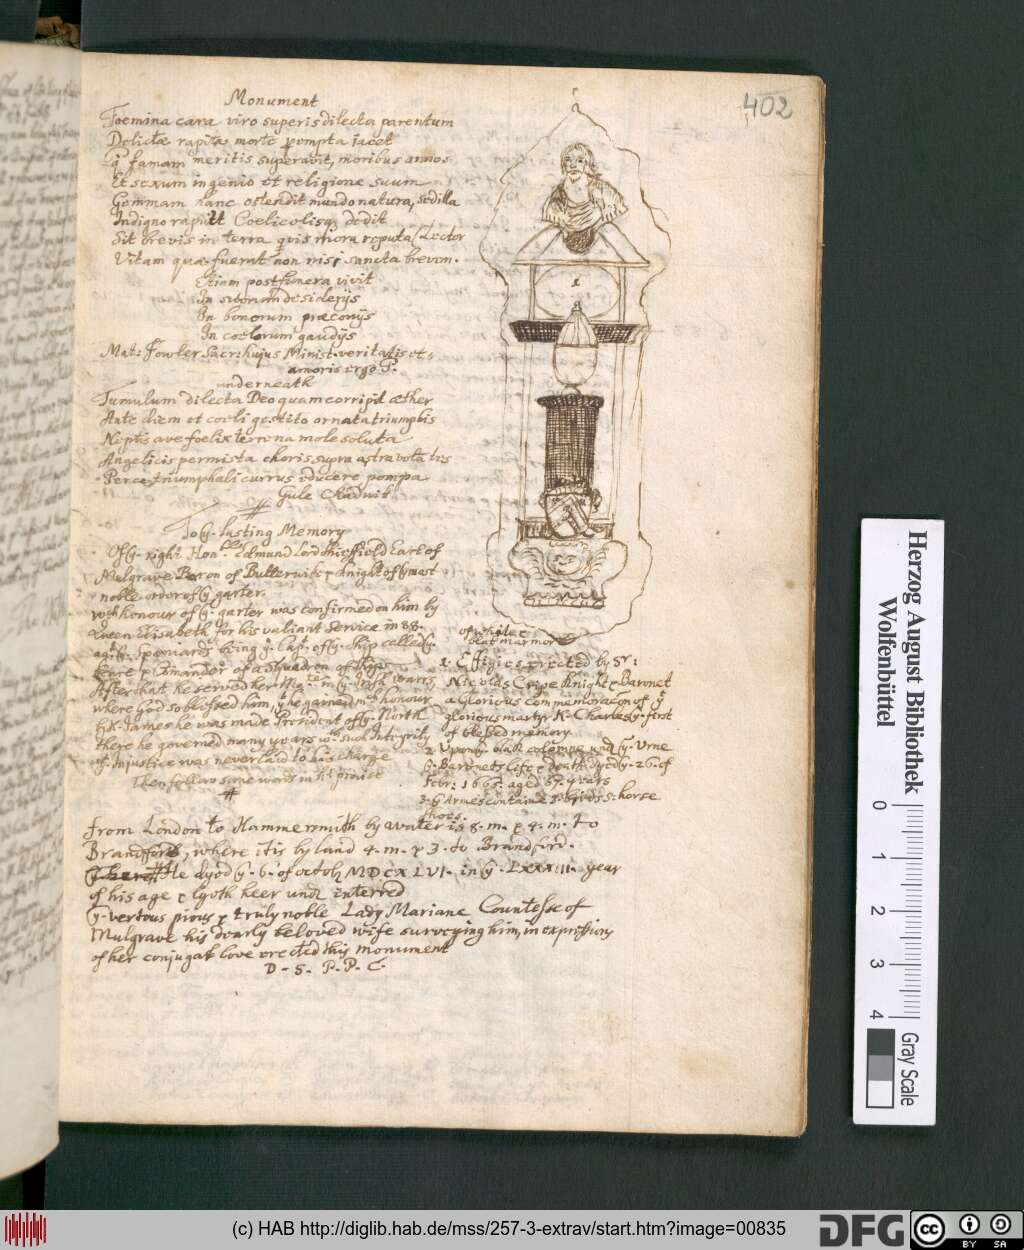 402
Monument
Foemina cara viro superis dilecta parentum
Delictæ rapita morte perempta jacet
q̃ famam meritis superavit, moribus annos
Et sexum ingenio et religione suum
Gemmam hanc ostendit mundo natura, sed illa
Indigno rapuit Coelicolisq dedit
Sit brevis in terra quis mora reputa Lector
Vitam quæ fuerat non nisi sancta brevem.
Etiam post funera vivit
In suorum desiderijs
In bonorum præconijs
In coelorum gaudijs
Mat: Fowler Sacr: hujus Minist. veritatis et
amoris ergo P.
underneath
Tumulum dilecta Deo quam corripit æther
Ante diem et coeli gestito ornata triumphis
Neptis ave foelix terrena mole soluta
Angelicis permista choris supra astra
Perce, triumphali currus educere pompa
Gule Chadwit
To ẙ. lasting Memory
Of ẙ. right Honble Edmund Lord Shieffield Earl of
Mulgrave Baron of Butterwike & Knight of ẙ most
noble order of ẙ garter.
wch honour of ẙ. garter was confirmed on him by
Queen Elisabeth for his valiant Service in 88.
ag: ẙ. Spaniards being ẙ. Cap: of ẙ. Ship called ẙ.
Beare & Comandor of a Squadron of Ships
After that he served her Maties in ẙ. Irish warrs
where God so blessed him, yt he gained much honour
by K. James he was made President of ẙ. North
there he governed many years wth such Integrity
yt. Injustice was never laid to his charge
Then follow some words in his praise
#
of white
beat marmor
1. Effigies erected by Sr:
Nicolas Crispe Knight & Baronet
a Glorious commemoration of ẙ
glorious martyr K. Charles ẙ. first
of blessed memory
2 Upon ẙ. black colomne und ẙ. Urne
ẙ. Baronets life & death dyed ẙ. 26. of
Febr: 1665. aged 67. years
3. ẙ Armes containe 5. horse
shoes.
from London to Hammersmith by water is 8. m. & 4. m. to
Brandford, where it is by land 4. m. & 3. to Brandford.
# He dyed ẙ. 6. of octob MDCXLVI. in ẙ. LXXXIII. year
of his age & lyeth heer und interred
ẙ. vertous pious & truly noble Lady Mariane Countesse of
Mulgrave his dearly beloved wife surveying him, in expression
of her conjugal love erected this monument
D - S. P. P. C.
1
Herzog August Bibliothek
Wolfenbüttel
0 1 2 3 4
Gray Scale
(c) HAB http://diglib.hab.de/mss/257-3-extrav/start.htm?image=00835
DFG
CC BY SA